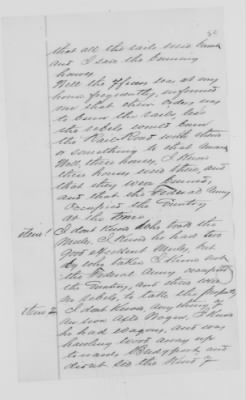 that all the rails were burnt
and I saw the burning
houses.
Well the officers was at my
house frequently, informed
me that their orders was
to burn the rails, for
the rebels would burn
the Rail Road with them
or something to that
Well, these houses, I know
these houses was there, and
that they were burned,
and that the Federal Army
occupied the Territory
at the time
Item 1 I dont know who took the
Mules, I know he had two
good Mules, but
by who taken I know not
the Federal Army occupied
the Territory, and there was
no rebels, to take the property
Item 2 I dont know anything of
an iron Axle Wagon, I know
he had wagons, and was
hauling wood away up
towards Bridgeport, and
did not see the kind of